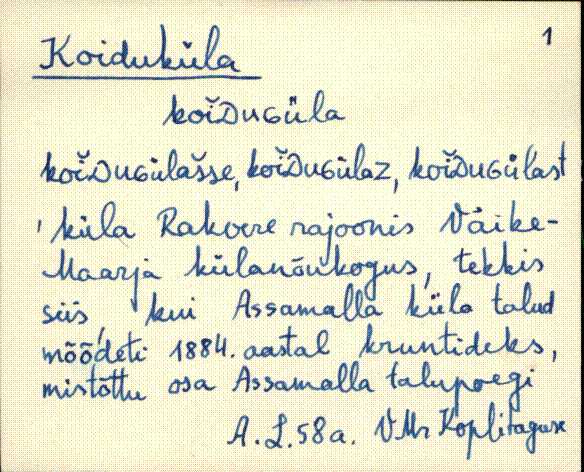 1
Koiduküla
koĭDuGüla
koĭDuGülašse, koĭDuGülaz, koĭDuGülast
' küla Rakvere rajoonis Väike-
Maarja külanõukogus, tekkis
siis, kui Assamalla küla talud
mõõdeti 1884. aastal kruntideks,
mistõttu osa Assamalla talupoegi
A. L. 58 a. VMr Koplitaguse